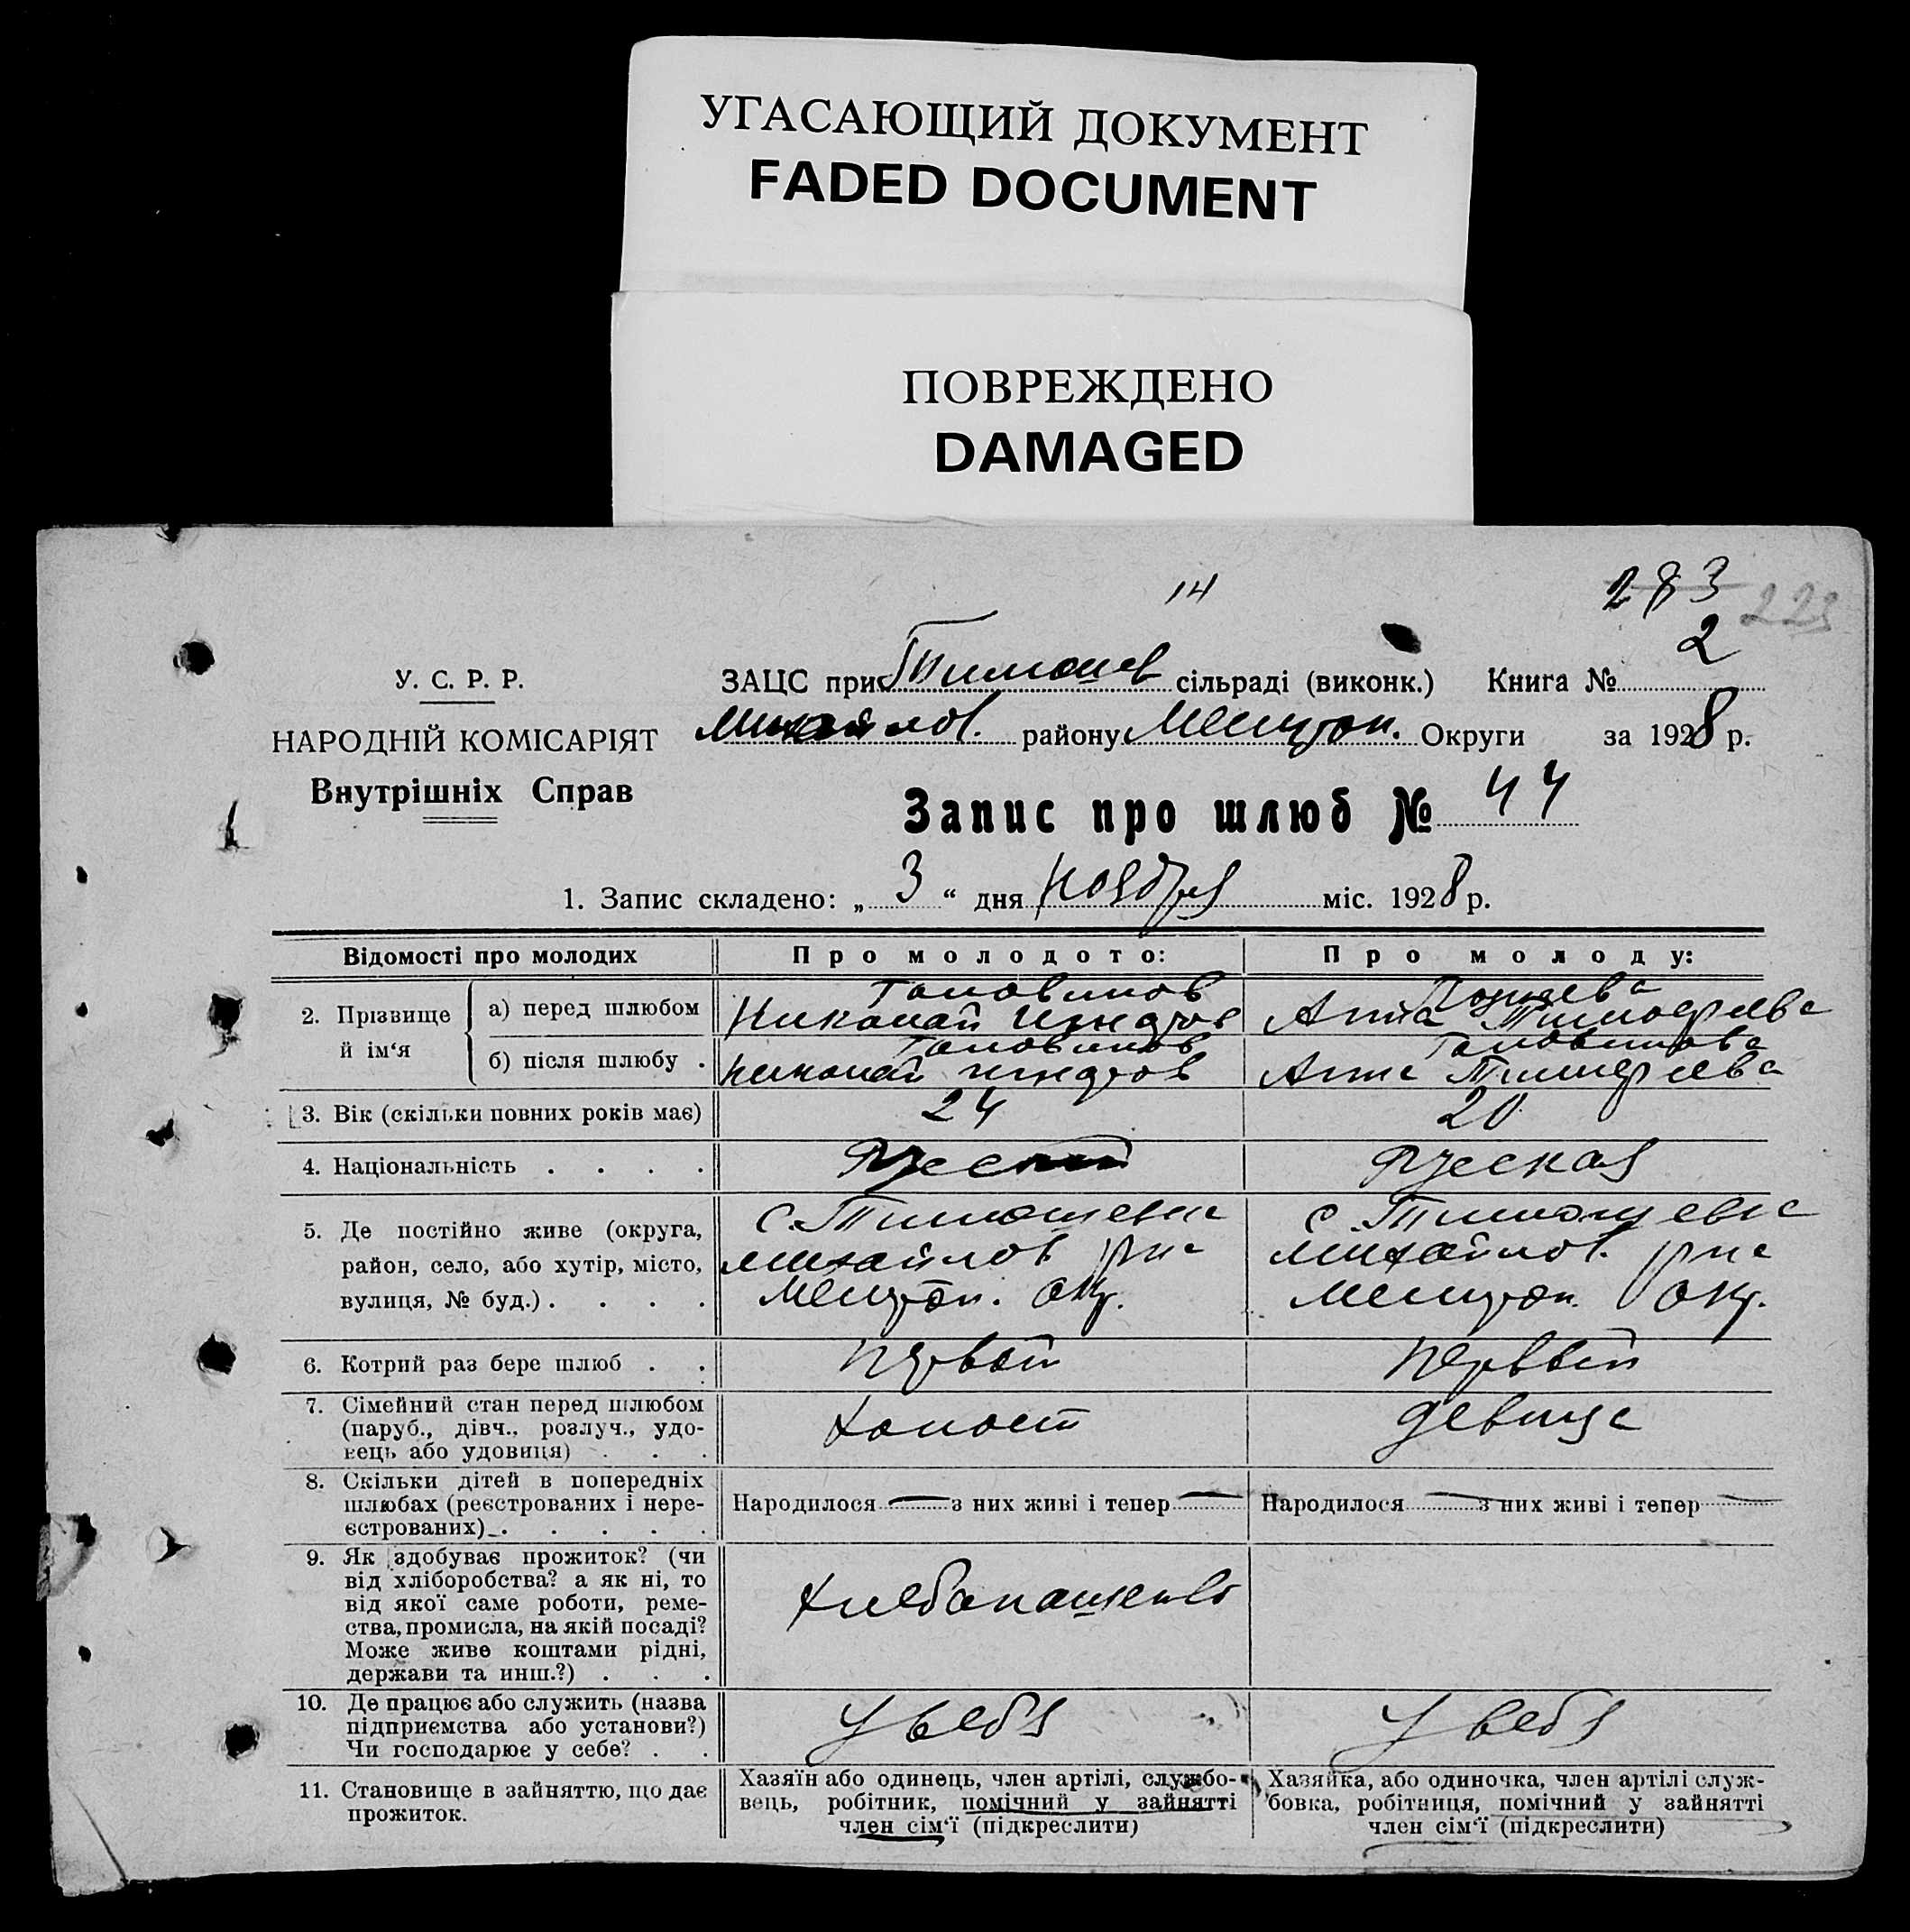 УГАСАЮЩИЙ ДОКУМЕНТ
FADED DOCUMENT
ПОВРЕЖДЕНО
DAMAGED
14
283
223
2
У. С. Р. Р.
НАРОДНІЙ КОМІСАРІЯТ
Внутрішніх Справ
ЗАЦС при Тимошев сільраді (виконк.) Книга №
Михайлов. району Мелитоп. Округи за 1928 р.
Запис про шлюб № 44
1. Запис складено: „ 3 “ дня Ноября міс. 1928 р.
Відомості про молодих
Про молодого:
Про молоду:
2. Прізвище й ім‘я
а) перед шлюбом
Головинов
Николай
Анна Тимофеева
б) після шлюбу .
Головинов
Николай
Головинова
Анна Тимофеева
3. Вік (скільки повних років має)
24
20
4. Національність . . . .
Русский
Русская
5. Де постійно живе (округа,
район, село, або хутір, місто,
вулиця, № буд.) . . . .
с. Тимошевка
Михайлов р-на
Мелитоп. окр.
с. Тимошевка
Михайлов. р-на
Мелитоп. окр.
6. Котрий раз бере шлюб . .
первый
первый
7. Сімейний стан перед шлюбом
(паруб., дівч., розлуч., удо-
вець або удовиця) . . .
холост
девица
8. Скільки дітей в попередніх
шлюбах (реєстрованих і нере-
єстрованих) . . . . .
Народилося — з них живі і тепер —
Народилося — з них живі і тепер —
9. Як здобуває прожиток? (чи
від хліборобства? а як ні, то
від якої саме роботи, реме-
ства, промисла, на якій посаді?
Може живе коштами рідні,
держави та инш.?) . . .
10. Де працює або служить (назва
підприємства або установи?)
Чи господарює у себе? . .
У себя
У себя
11. Становище в зайняттю, що дає
прожиток.
Хазяїн або одинець, член артілі, службо-
вець, робітник, помічний у зайнятті
член сім‘ї (підкреслити)
Хазяйка, або одиночка, член артілі служ-
бовка, робітниця, помічний у зайнятті
член сім‘ї (підкреслити)